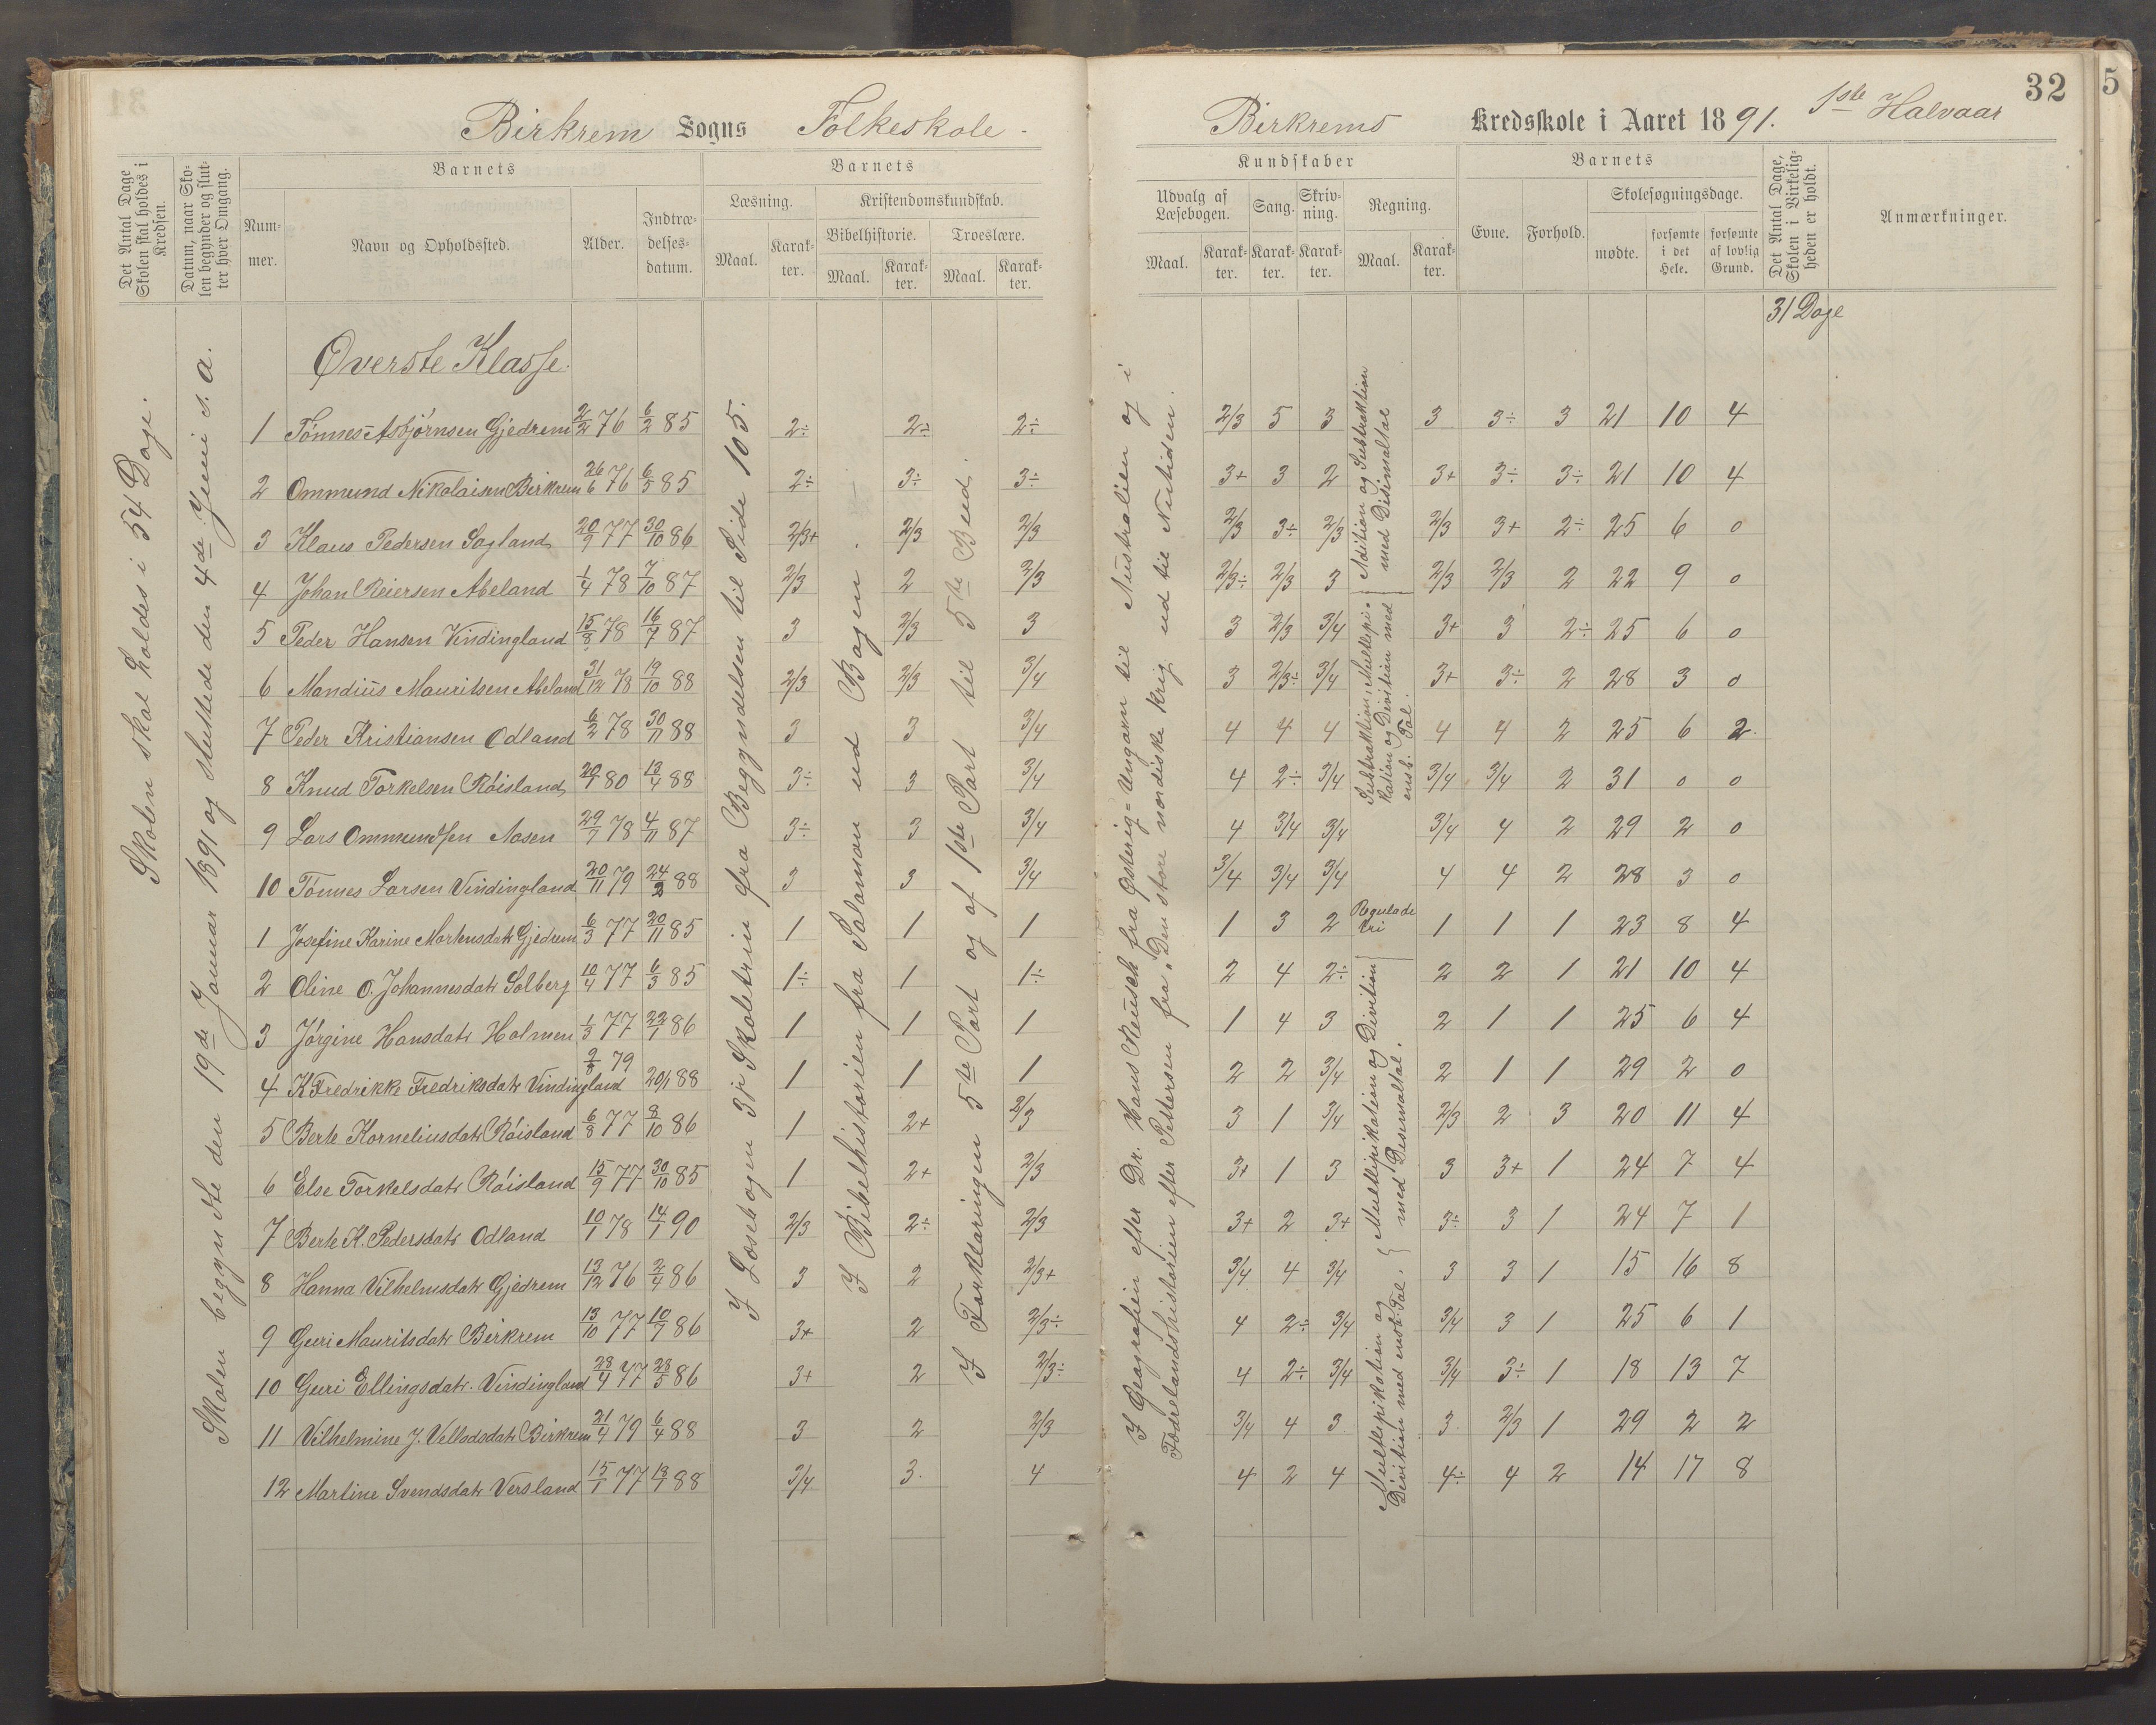 32
5
Birkrem Sogns Folkeskole.
Birkrems Kredsskole i Aaret 1891. 1ste Halvaar
Det Antal Dage Skolen skal holdes i Kredsen.
Datum, naar Skolen begynder og slutter hver Omgang.
Barnets
Nummer.
Navn og Opholdssted.
Alder.
Indtrædelsesdatum.
Barnets
Læsning.
Maal.
Karakter.
Kristendomskundskab.
Bibelhistorie.
Maal.
Karakter.
Troeslære.
Maal.
Karakter.
Kundskaber
Udvalg af Læsebogen.
Maal.
Karakter.
Sang.
Karakter.
Skrivning.
Karakter.
Regning.
Maal.
Karakter.
Barnets
Evne.
Forhold.
Skolesøgningsdage.
mødte.
forsømte i det Hele.
forsømte af lovlig Grund.
Det Antal Dage, Skolen i Virkeligheden er holdt.
Anmærkninger.
31 Dage
Skolen skal holdes i 54 Dage.
Skolen begyndte den 19de Januar 1891 og sluttede den 4de Juni s. a.
Øverste Klasse.
I Læsebogen 3die Skoletrin fra Begyndelsen til Side 105.
I Bibelhistorien fra Salamon ud Bogen.
I Forklaringen 5te Part og af 1ste Part til 5te Bud.
I Geografien efter Dr. Hans Reusch fra Østerig=Ungarn til Australien og i
Fædrelandshistorien efter Pettersen fra „Den store nordiske krig ud til Nutiden.
Adition og Subtraktion med Desimaltal
Subtraktion, Multipikation og Divition med ensb. Tal.
Regulade tri
Multipikation og Divition med Desimaltal.
Multepikation og Divition med ensb. Tal.
1 Tønnes Asbjørnsen Gjedrem 2/2 76 6/2 85 2÷ 2÷ 2÷ 2/3 5 3 3 3÷ 3 21 10 4
2 Ommund Nikolaisen Birkrem 26/6 76 6/5 85 2÷ 3÷ 3÷ 3+ 3 2 3+ 3÷ 3÷ 21 10 4
3 Klaus Pedersen Sagland 20/9 77 30/10 86 2/3+ 2/3 2/3 2/3 3÷ 2/3 2/3 3+ 2÷ 25 6 0
4 Johan Reiersen Abeland 1/4 78 7/10 87 2/3 2 2/3 2/3÷ 2/3 3 2/3 2/3 2 22 9 0
5 Peder Hansen Vindingland 15/8 78 16/7 87 3 2/3 3 3 2/3 3/4 3+ 3 2÷ 25 6 0
6 Mandius Mauritsen Abeland 31/12 78 19/10 88 2/3 2/3 3/4 3 2/3÷ 3/4 3+ 3÷ 2 28 3 0
7 Peder Kristiansen Odland 6/2 78 30/11 88 3 3 3/4 4 4 4 4 4 2 25 6 2
8 Knud Torkelsen Røisland 20/1 80 13/4 88 3÷ 3 3/4 4 2÷ 3/4 3/4 3/4 2 31 0 0
9 Lars Ommundsen Aasen 29/7 78 4/11 87 3÷ 3 3/4 4 3/4 3/4 3/4 4 2 29 2 0
10 Tønnes Larsen Vindingland 20/11 79 24/2 88 3 3 3/4 3/4 3/4 3/4 4 4 2 28 3 0
1 Josefine Karine Mortensdatr Gjedrem 6/3 77 20/11 85 1 1 1 1 3 2 1 1 1 23 8 4
2 Oline O. Johannesdatr Solberg 10/4 77 6/3 85 1÷ 1 1÷ 2 4 2÷ 2 2 1 21 10 4
3 Jørgine Hansdatr Holmen 1/3 77 22/1 86 1 1 1 1 4 3 2 1 1 25 6 4
4 K Fredrikke Fredriksdatr Vindingland 2/8 79 20/1 88 1 1 1 2 2 3/4 2 1 1 29 2 0
5 Berte Korneliusdatr Røisland 6/8 77 8/10 86 1 2+ 2/3 3 1 3/4 2/3 2 3 20 11 4
6 Else Torkelsdatr Røisland 15/9 77 30/10 85 1 2+ 2/3 3+ 1 3 3 3+ 1 24 7 4
7 Berte K. Pedersdatr Odland 10/1 78 14/1 90 2/3 2÷ 2/3 3+ 2 3+ 3÷ 3 1 24 7 1
8 Hanna Vilhelmsdatr Gjedrem 13/12 76 2/4 86 3 2 2/3+ 3/4 4 3/4 3 3 1 15 16 8
9 Guri Mauritsdatr Birkrem 13/10 77 10/7 86 3+ 2 2/3÷ 4 2÷ 3/4 3/4 3 1 25 6 1
10 Guri Ellingsdatr. Vindingland 28/4 77 28/5 86 3+ 2 2/3÷ 4 2÷ 3/4 3/4 3÷ 1 18 13 7
11 Vilhelmine J. Velladsdatr Birkrem 21/4 79 6/4 88 3 2 2/3 3/4 4 3 3 2/3 1 29 2 2
12 Martine Svendsdatr Versland 15/1 77 13/1 88 3/4 3 4 4 2 4 4÷ 4 2 14 17 8